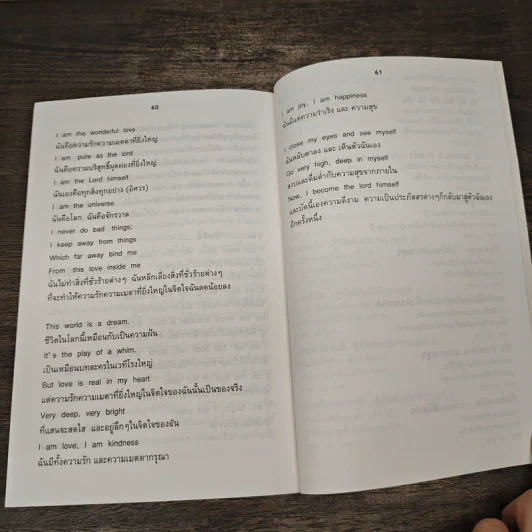 60
I am the wonderful love
ฉันคือความรักความเมตตาที่ยิ่งใหญ่
I am pure as the lord
ฉันคือความบริสุทธิ์ผุดผ่องที่ยิ่งใหญ่
I am the Lord himself
ฉันเองคือทุกสิ่งทุกอย่าง (อิศวร)
I am the universe
ฉันคือโลก ฉันคือจักรวาล
I never do bad things;
I keep away from things
Which far away bind me
From this love inside me
ฉันไม่ทำสิ่งที่ชั่วร้ายต่างๆ ฉันหลีกเลี่ยงสิ่งที่ชั่วร้ายต่างๆ
ที่จะทำให้ความรักความเมตตาที่ยิ่งใหญ่ในจิตใจฉันลดน้อยลง
This world is a dream.
ชีวิตในโลกนี้เหมือนกับเป็นความฝัน
It's the play of a whim.
เป็นเหมือนบทละครในเวทีโรงใหญ่
But love is real in my heart
แต่ความรักความเมตตาที่ยิ่งใหญ่ในจิตใจของฉันนั้นเป็นของจริง
Very deep, very bright
ที่แสนจะสดใส และอยู่ลึกๆในจิตใจของฉัน
I am love, I am kindness
ฉันมีทั้งความรัก และความเมตตากรุณา
61
I am joy, I am happiness
ฉันมีแต่ความร่าเริง และ ความสุข
I close my eyes and see myself
ฉันหลับตาลง และ เห็นตัวฉันเอง
Go very high, deep in myself
สงบและดื่มด่ำกับความสุขจากภายใน
Now, I become the lord himself
และบัดนี้เองความดีงาม ความเป็นประภัสสรต่างๆก็กลับมาสู่ตัวฉันเอง
อีกครั้งหนึ่ง